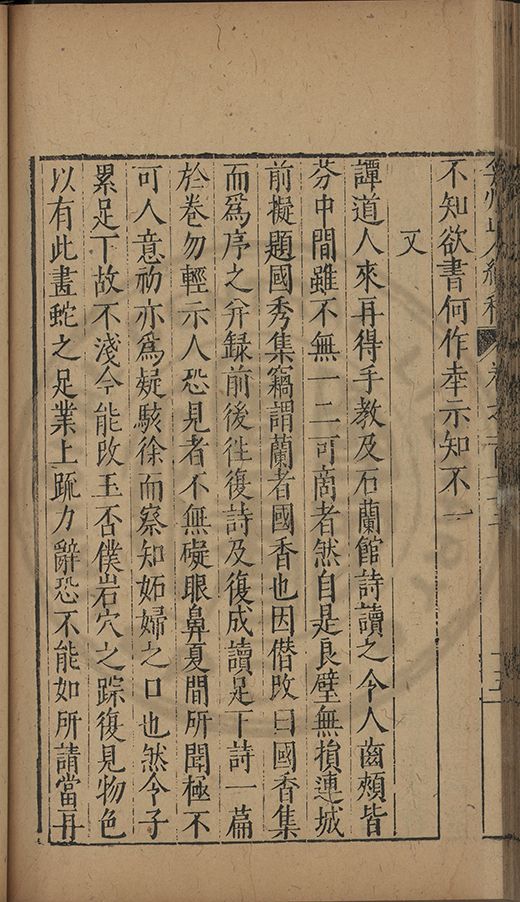 弇州山人續稿 卷之一百
不知欲書何作幸示知不一
又
譚道人來再得手教及石蘭館詩讀之令人齒頰皆
芬中間雖不無一二可商者然自是良璧無損連城
前擬題國秀集竊謂蘭者國香也因僣改曰國香集
而爲序之并録前後徃復詩及復成讀足下詩一篇
於卷勿輕示人恐見者不無礙眼鼻夏間所聞極不
可人意初亦爲疑駭徐而察知妬婦之口也然令子
累足下故不淺今能改玉否僕岩穴之踪復見物色
以有此畫蛇之足業上疏力辭恐不能如所請當再